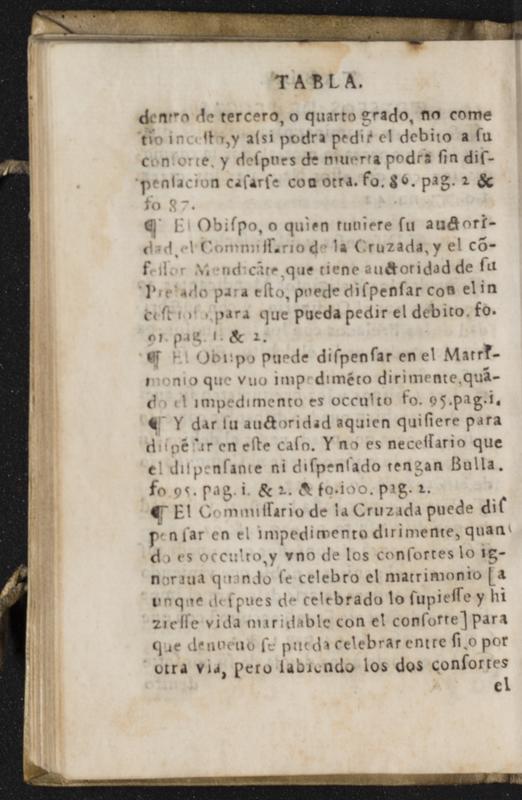 TABLA.
dentro de tercero, o quarto grado, no come
tio incesto, y assi podra pedir el debito a su
consorte, y despues de muerta podra sin dis-
pensacion casarse con otra. fo. 86. pag. 2 &
fo 87.
¶ El Obispo, o quien tuuiere su auctori-
dad, el Commissario de la Cruzada, y el cõ-
fessor Mendicãte, que tiene auctoridad de su
Prelado para esto, puede dispensar con el in
cestuoso, para que pueda pedir el debito. fo.
91. pag. 1. & 2.
¶ El Obispo puede dispensar en el Matri-
monio que vuo impedimẽto dirimente, quã-
do el impedimento es occulto fo. 95. pag. i.
¶ Y dar su auctoridad aquien quisiere para
dispẽsar en este caso. Y no es necessario que
el dispensante ni dispensado tengan Bulla.
fo 95. pag. i. & 2. & fo. 100. pag. 2.
¶ El Commissario de la Cruzada puede dis
pensar en el impedimento dirimente, quan
do es occulto, y vno de los consortes lo ig-
noraua quando se celebro el matrimonio [a
unque despues de celebrado lo supiesse y hi
ziesse vida maridable con el consorte] para
que denueuo se pueda celebrar entre si, o por
otra via, pero sabiendo los dos consortes
el